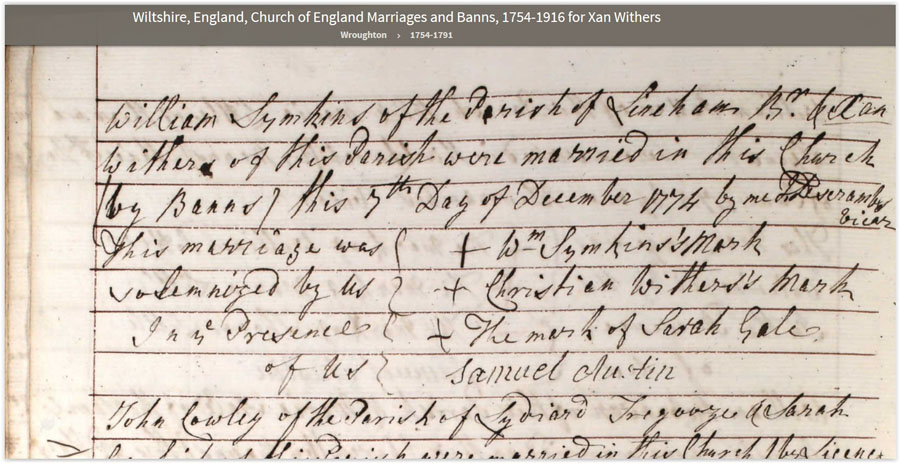 Wiltshire, England, Church of England Marriages and Banns, 1754-1916 for Xan Withers
Wroughton > 1754-1791
William Symkins of the Parish of Lineham Br. & Xan
Withers of this Parish were married in this Church
(by Banns) this 7th Day of December 1774 by me
Vicar
This marriage was + Wm Symkins's Mark
solemnized by us + Christian Withers's Mark
In ye Presence + The mark of Sarah Gale
of Us Samuel Austin
John Cowley of the Parish of Lydiard Tregooze & Sarah
of this Parish were married in this Church by Licence